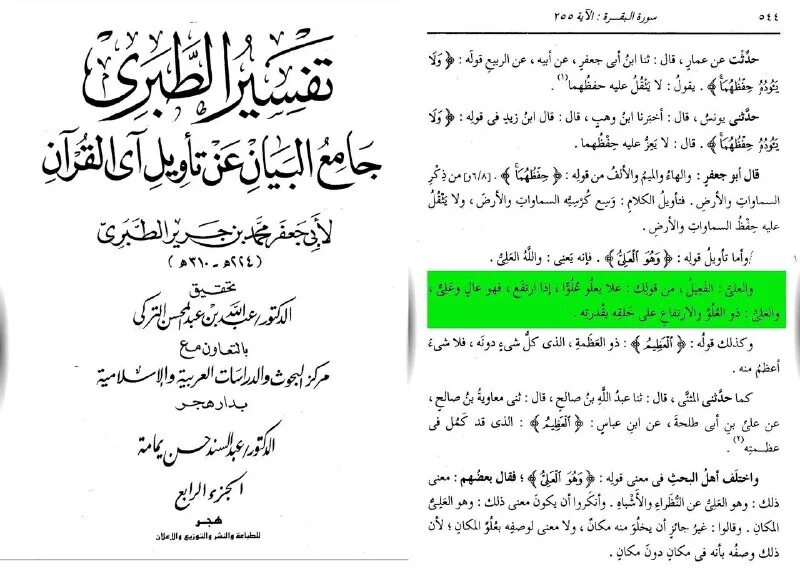 تفسير الطبرى
جامع البيان عن تأويل آى القرآن
لأبى جعفر محمد بن جرير الطبرى
(٢٢٤هـ - ٣١٠هـ)
تحقيق
الدكتور عبد الله بن عبد المحسن التركى
بالتعاون مع
مركز البحوث والدراسات العربية والإسلامية
بدار هجر
الدكتور/ عبد السند حسن يمامة
الجزء الرابع
هجر
للطباعة والنشر والتوزيع والإعلان
٥٤٤ سورة البقرة : الآية ٢٥٥
حدِّثت عن عمارٍ ، قال : ثنا ابنُ أبى جعفرٍ ، عن أبيه ، عن الربيعِ قولَه : ﴿ وَلَا
يَـُٔودُهُۥ حِفْظُهُمَا ﴾ . يقولُ : لا يَثْقُلُ عليه حفظُهما(١) .
حدَّثنى يونسُ ، قال : أخبرَنا ابنُ وهبٍ ، قال : قال ابنُ زيدٍ فى قولِه : ﴿ وَلَا
يَـُٔودُهُۥ حِفْظُهُمَا ﴾ . قال : لا يَعِزُّ عليه حفظُهما .
قال أبو جعفرٍ : والهاءُ والميمُ والألفُ من قولِه : ﴿ حِفْظُهُمَا ﴾ . [٨/٩٦و] من ذِكْرِ
السماواتِ والأرضِ . فتأويلُ الكلامِ : وَسِع كُرْسِيُّه السماواتِ والأرضَ ، ولا يَثْقُلُ
عليه حِفْظُ السماواتِ والأرضِ .
/وأما تأويلُ قولِه : ﴿ وَهُوَ ٱلْعَلِىُّ ﴾ . فإنه يَعنِى : واللَّهُ العَلِىُّ .
والعلىُّ : الفَعِيلُ ، من قولِك : علا يعلُو عُلُوًّا ، إذا ارتفَع ، فهو عالٍ وعَلِىٌّ ،
والعَلِىُّ : ذو العُلُوِّ والارتفاعِ على خلقِه بقُدرتِه .
وكذلك قولُه : ﴿ ٱلْعَظِيمُ ﴾ : ذو العَظَمةِ ، الذى كلُّ شىءٍ دونَه ، فلا شىءَ
أعظمُ منه .
كما حدَّثنى المثنَّى ، قال : ثنا عبدُ اللَّهِ بنُ صالحٍ ، قال : ثنى معاويةُ بنُ صالحٍ ،
عن علىِّ بنِ أبى طلحةَ ، عن ابنِ عباسٍ : ﴿ ٱلْعَظِيمُ ﴾ : الذى قد كَمُل فى
عظمتِه(٢) .
واختلَف أهلُ البحثِ فى معنى قولِه : ﴿ وَهُوَ ٱلْعَلِىُّ ﴾ ؛ فقال بعضُهم : معنى
ذلك : وهو العَلِىُّ عن النُّظَراءِ والأَشْباهِ . وأنكَروا أن يكونَ معنى ذلك : وهو العَلِىُّ
المكانِ . وقالوا : غيرُ جائزٍ أن يخلُوَ منه مكانٌ ، ولا معنى لوصفِه بعُلُوِّ المكانِ ؛ لأن
ذلك وصفُه بأنه فى مكانٍ دونَ مكانٍ .